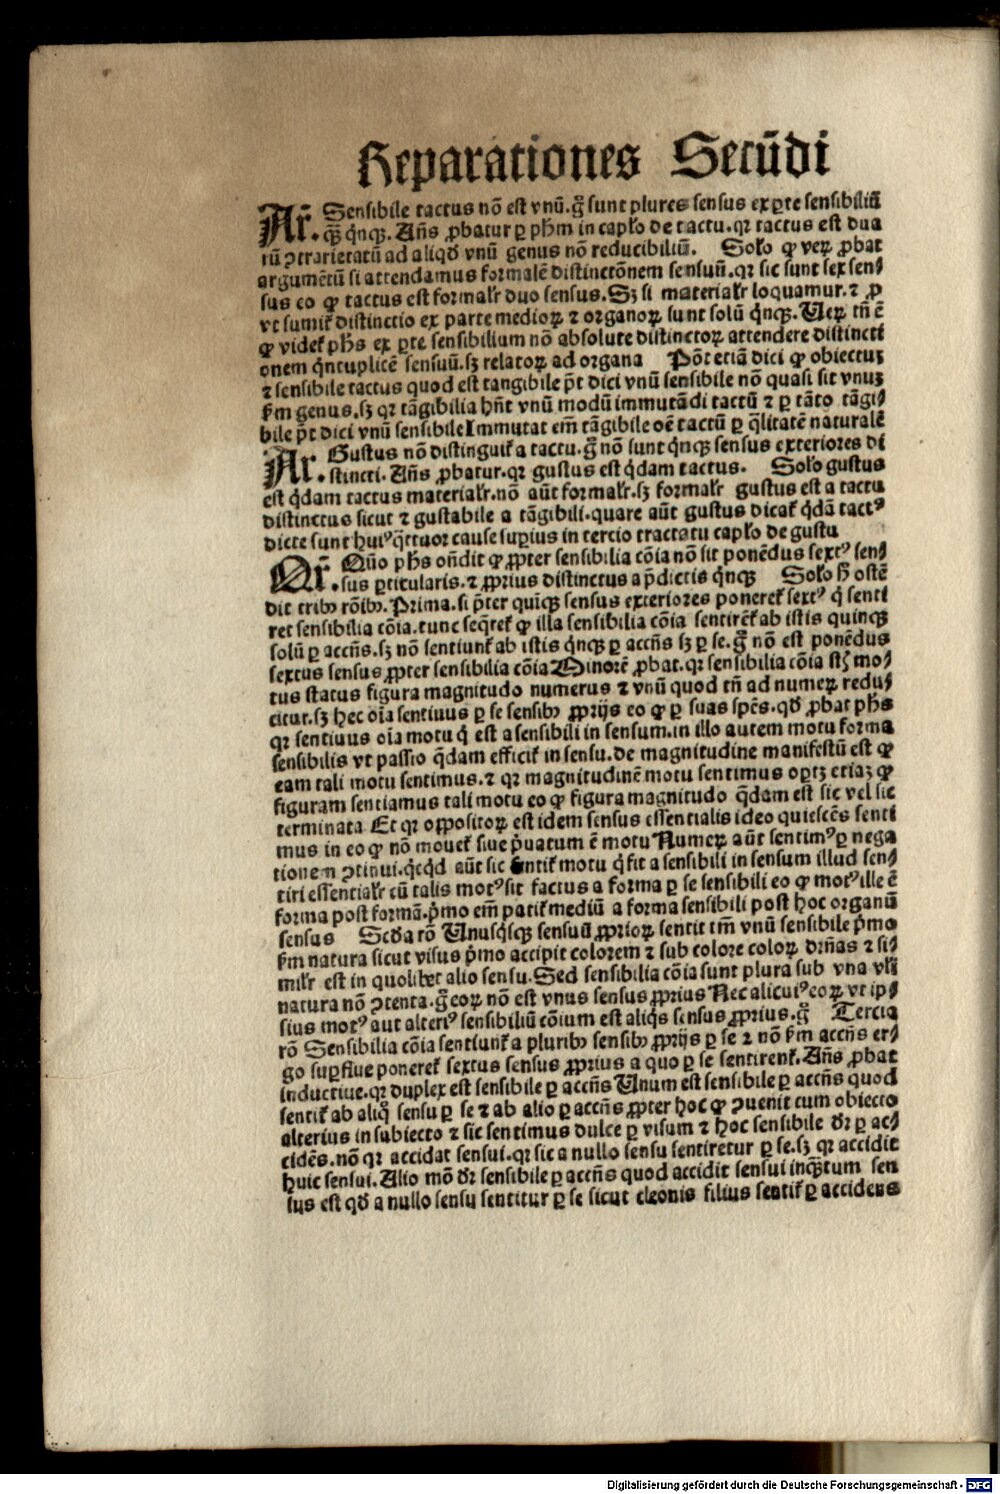 Reparationes Secūdi
Ar̄. Sensibile tactus nō est vnū.gͦ sunt plures sensus ex ꝑte sensibiliū
qꝫ̄ qͥnqꝫ. Añs ꝓbatur ꝑ phm̄ in capło de tactu.qꝛ tactus est dua
rū ꝯtrarietatū ad aliqd̄ vnū genus nō reducibiliū. Solo ꝙ veꝝ ꝓbat
argumētū si attendamus formalē distinctōnem sensuū.qꝛ sic sunt sex sen⸗
sus eo ꝙ tactus est formalr̄ duo sensus. Sꝫ si materialr̄ loquamur.⁊ ꝓ
vt sumit̄ distinctio ex parte medioꝝ ⁊ organoꝝ sunt solū qͥnqꝫ. Ueꝝ tñ ē
ꝙ videt̄ phs̄ ex ꝑte sensibilium nō absolute distinctoꝝ attendere distincti
onem qͥntuplicē sensuū.sꝫ relatoꝝ ad organa Pōt etiā dici ꝙ obiectuꝫ
⁊ sensibile tactus quod est tangibile pōt dici vnū sensibile nō quasi sit vnuꝫ
ẜm genus.sꝫ qꝛ tāgibilia hñt vnū modū immutādi tactū ⁊ ꝑ tāto tāgi⸗
bile pōt dici vnū sensibile Immutat em̄ tāgibile oē tactū ꝑ qͣlitatē naturalē
Ar̄. Gustus nō distinguit̄ a tactu.gͦ nō sunt qͥnqꝫ sensus exteriores di
stincti. Añs ꝓbatur.qꝛ gustus est qͥdam tactus. Solo gustus
est qͥdam tactus materialr̄.nō aūt formalr̄.sꝫ formalr̄ gustus est a tactu
distinctus sicut ⁊ gustabile a tāgibili.quare aūt gustus dicat̄ qͥdā tactꝰ
dicte sunt huiꝰ qͣttuor cause suꝑius in tercio tractatu capło de gustu
Qr̄. Quō phs̄ oñdit ꝙ ꝓpter sensibilia cōia nō sit ponēdus sextꝰ sen⸗
sus ꝑticularis.⁊ ꝓprius distinctus a p̄dictis qͥnqꝫ Solo hͦ ostē
dit tribꝰ rōibꝰ. Prima.si p̄ter quīqꝫ sensus exteriores poneret̄ sextꝰ qͥ senti
ret sensibilia cōia.tunc seq̄ret̄ ꝙ illa sensibilia cōia sentirēt̄ ab istis quinqꝫ
solū ꝑ accñs.sꝫ nō sentiunt̄ ab istis qͥnqꝫ ꝑ accñs sꝫ ꝑ se.gͦ nō est ponēdus
sextus sensus ꝓpter sensibilia cōia Minorē ꝓbat.qꝛ sensibilia cōia st̄ꝫ mo⸗
tus status figura magnitudo numerus ⁊ vnū quod tñ ad numeꝝ redu⸗
citur.sꝫ hec oīa sentiuus ꝑ se sensibꝰ ꝓprijs eo ꝙ ꝑ suas spēs.qd̄ ꝓbat phs̄
qꝛ sentiuus oīa motu qͥ est a sensibili in sensum.in illo autem motu forma
sensibilis vt passio qͥdam efficit̄ in sensu.de magnitudine manifestū est ꝙ
eam tali motu sentimus.⁊ qꝛ magnitudinē motu sentimus oꝑtꝫ etiaꝫ ꝙ
figuram sentiamus tali motu eo ꝙ figura magnitudo qͥdam est sic vel sic
terminata Et qꝛ oppositoꝝ est idem sensus essentialis ideo quiescēs senti
mus in eo ꝙ nō mouet̄ siue p̄uatum ē motu Numeꝝ aūt sentimꝰ ꝑ nega
tionem ꝯtinui.qͥcqͥd aūt sic sentit̄ motu qͥ fit a sensibili in sensum illud sen⸗
tiri essentialr̄ cū talis motꝰ sit factus a forma ꝑ se sensibili eo ꝙ motꝰ ille ē
forma post formā.pͥmo em̄ patit̄ mediū a forma sensibili post hoc organū
sensus Scd̄a rō Unusqͥsqꝫ sensuū ꝓprioꝝ sentit tm̄ vnū sensibile pͥmo
ẜm natura sicut visus pͥmo accipit colorem ⁊ sub colore coloꝝ dr̄ñas ⁊ si⸗
milr̄ est in quolibet alio sensu. Sed sensibilia cōia sunt plura sub vna vłi
natura nō ꝯtenta.gͦ eoꝝ nō est vnus sensus ꝓprius Nec alicuiꝰ eoꝝ vt ip⸗
sius motꝰ aut alteriꝰ sensibiliū cōium est aliqͥs sensus ꝓprius.gͦ Tercia
rō Sensibilia cōia sentiunt̄ a pluribꝰ sensibꝰ ꝓprijs ꝑ se ⁊ nō ẜm accñs er⸗
go suꝑflue poneret̄ sextus sensus ꝓprius a quo ꝑ se sentirent̄. Añs ꝓbat
inductiue.qꝛ duplex est sensibile ꝑ accñs Unum est sensibile ꝑ accñs quod
sentit̄ ab aliqͦ sensu ꝑ se ⁊ ab alio ꝑ accñs ꝓpter hoc ꝙ ꝯuenit cum obiecto
alterius in subiecto ⁊ sic sentimus dulce ꝑ visum ⁊ hoc sensibile dr̄ ꝑ ac⸗
cidēs.nō qꝛ accidat sensui.qꝛ sic a nullo sensu sentiretur ꝑ se.sꝫ qꝛ accidit
huic sensui. Alio mō dr̄ sensibile ꝑ accñs quod accidit sensui inqͣꝫtum sen
sus est qd̄ a nullo sensu sentitur ꝑ se sicut cleonis filius sentit̄ ꝑ accidens
Digitalisierung gefördert durch die Deutsche Forschungsgemeinschaft - DFG